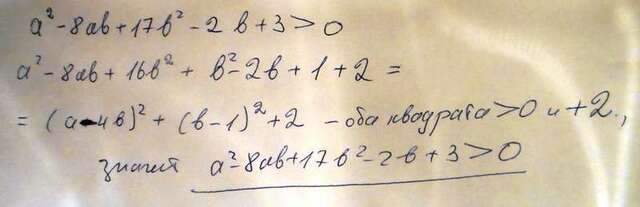 a² - 8ab + 17b² - 2b + 3 > 0
a² - 8ab + 16b² + b² - 2b + 1 + 2 =
= (a - 4b)² + (b - 1)² + 2 - оба квадрата > 0 и + 2,
значит a² - 8ab + 17b² - 2b + 3 > 0